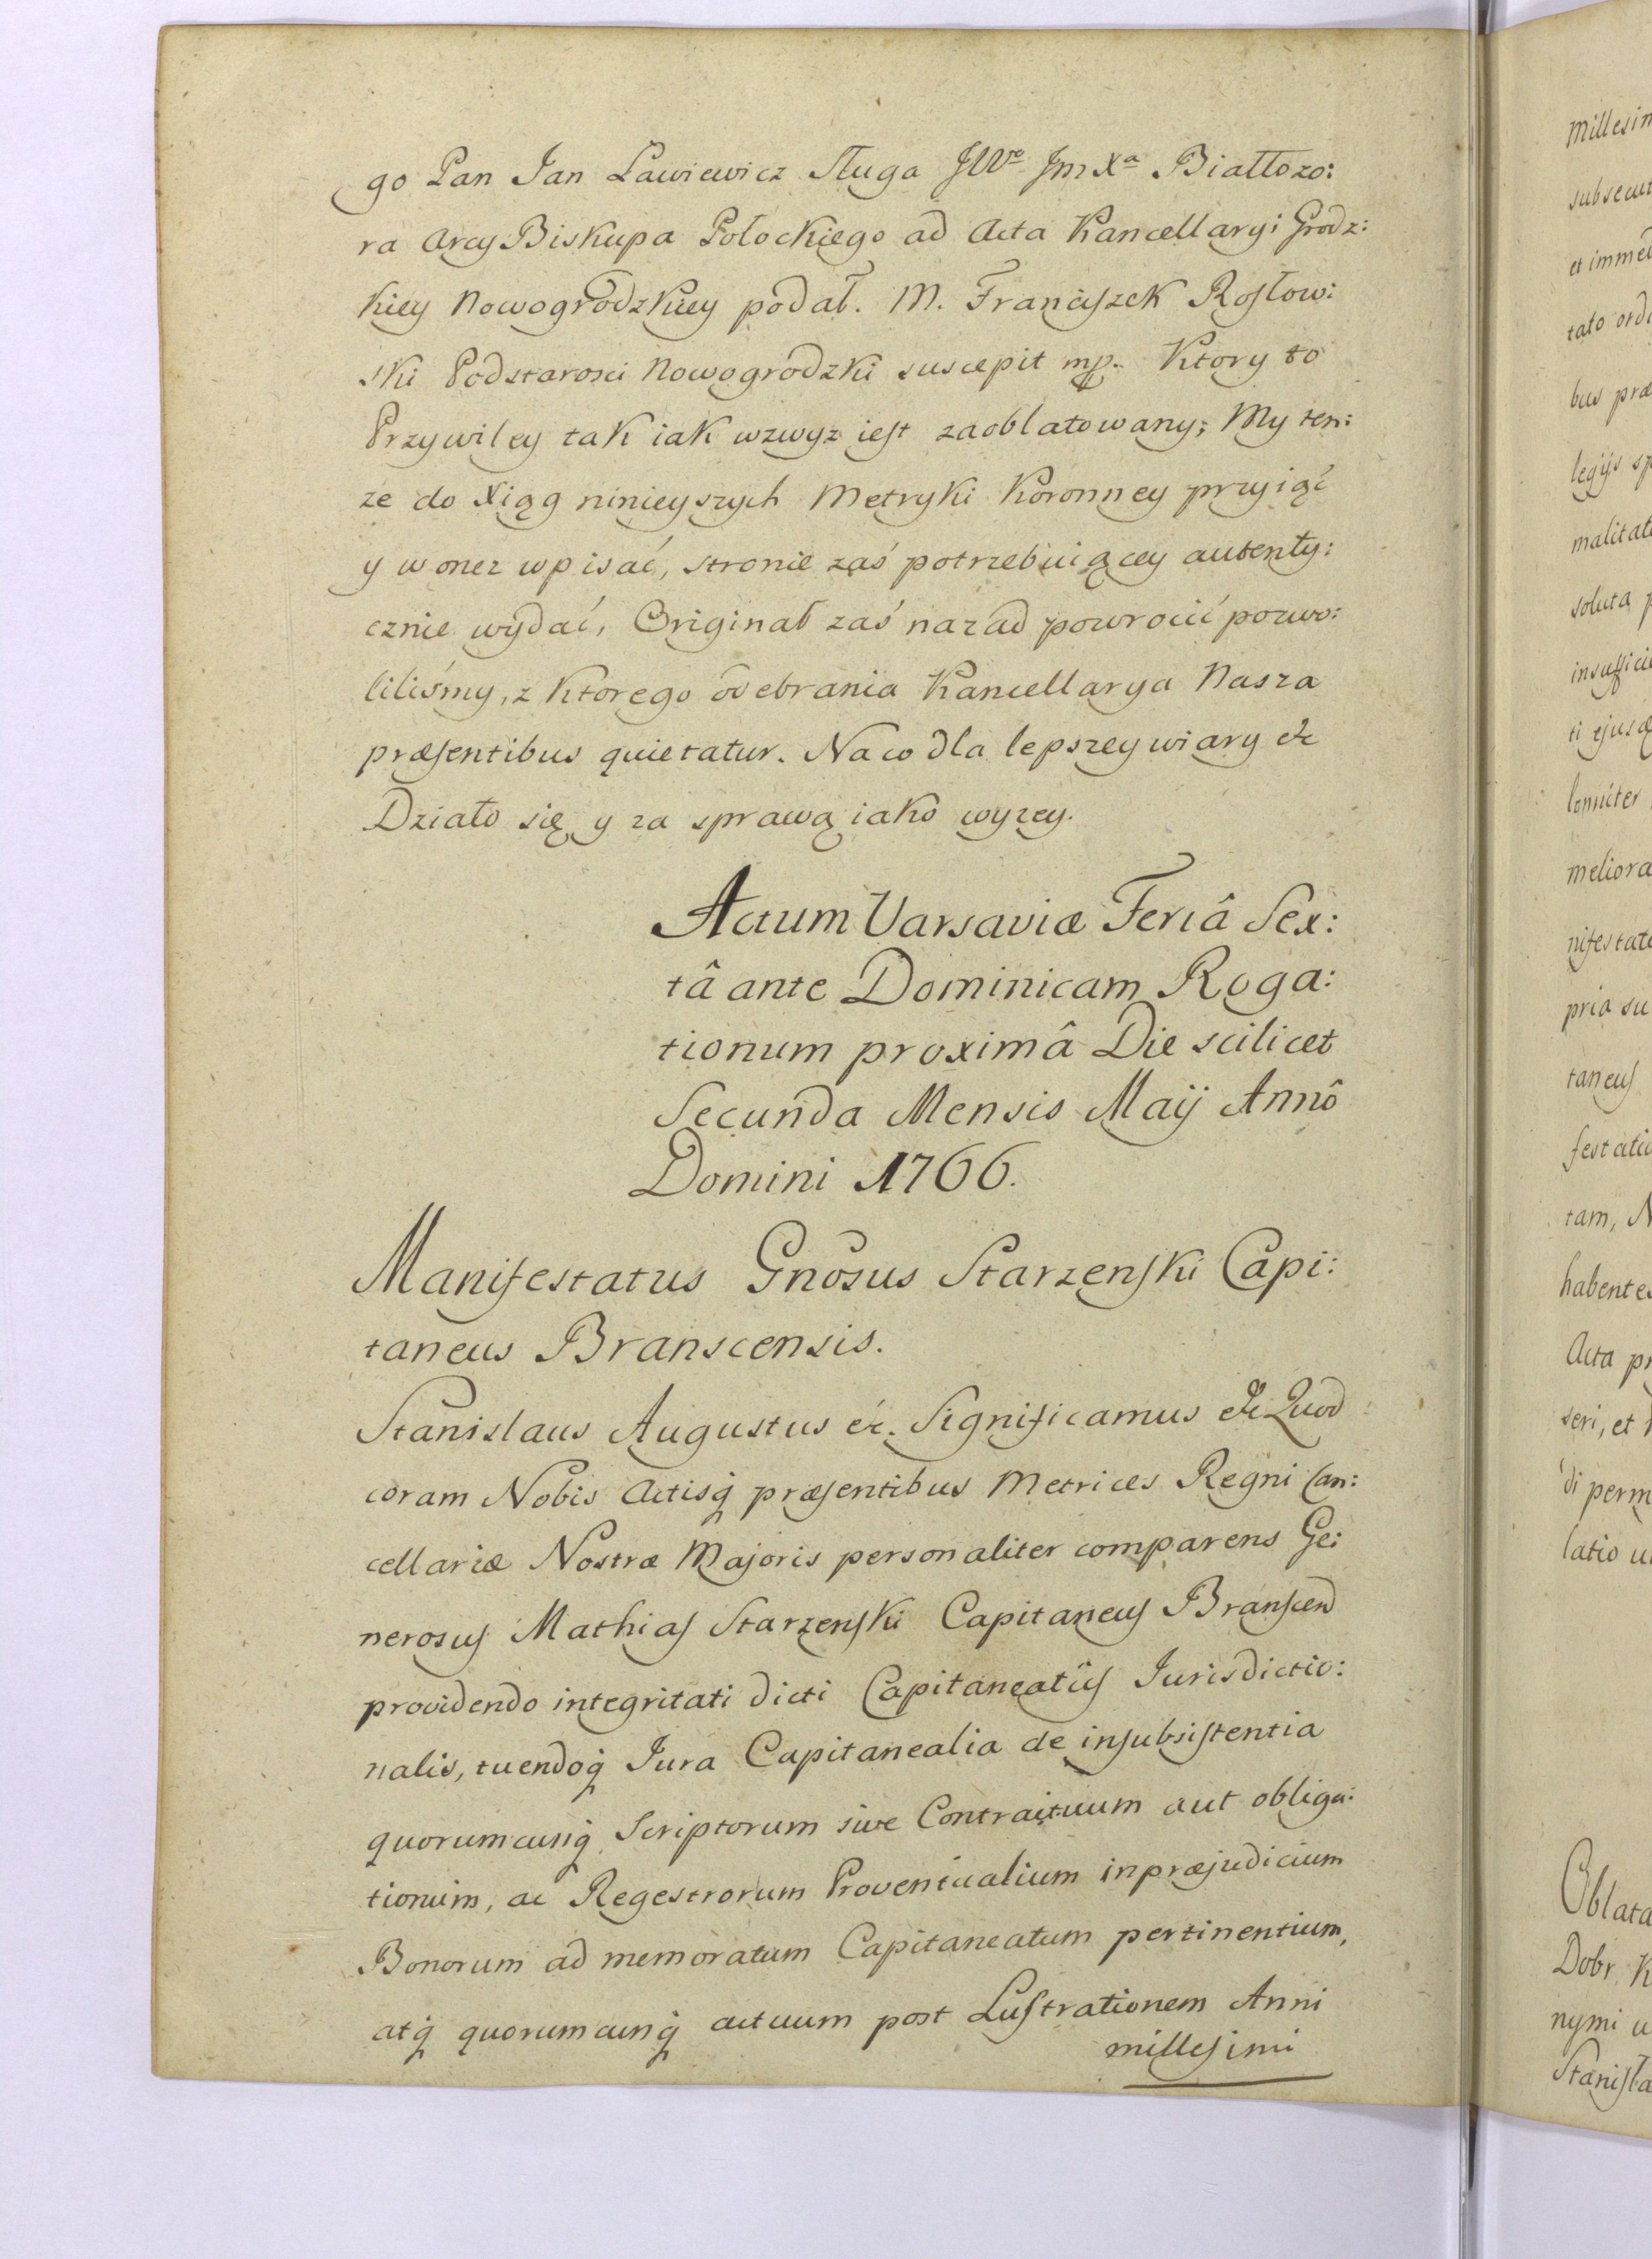 go Pan Jan Lawiewicz sługa JWo Jm Xa Białłozo:
ra Arcy Biskupa Połockiego ad Acta Kancellaryi Grodz:
kiey Nowogrodzkiey podał. M. Franciszek Rosłow:
ski Podstarosci Nowogrodzki suscepit mp. Ktory to
Przywiley tak iak wzwyz iest zaoblatowany; My ten:
ze do Xiąg ninieyszych Metryki Koronney przyiąć
y w onez wpisać, stronie zaś potrzebuiącey autenty:
cznie wydać, Originał zaś nazad powrocić pozwo:
liliśmy, z ktorego odebrania Kancellarya Nasza
præsentibus quietatur. Na co dla lepszey wiary &c
Działo się y za sprawą iako wyzey.
Actum Varsaviæ Feriâ Sex:
tâ ante Dominicam Roga:
tionum proximâ Die scilicet
Secunda Mensis Maij Annô
Domini 1766.
Manifestatus Gnosus Starzenski Capi:
taneus Branscensis.
Stanislaus Augustus &c. Significamus &c Quod
coram Nobis Actisq præsentibus Metrices Regni Can:
cellariæ Nostræ Majoris personaliter comparens Ge:
nerosus Mathias Starzenski Capitaneus Branscen
providendo integritati dicti Capitaneatûs Jurisdictio:
nalis, tuendoq Jura Capitanealia de insubsistentia
quorumcunq Scriptorum sive Contractuum aut obliga:
tionum, ac Regestrorum Proventualium in præjudicium
Bonorum ad memoratum Capitaneatum pertinentium,
atq quorumcunq actuum post Lustrationem Anni
millesimi